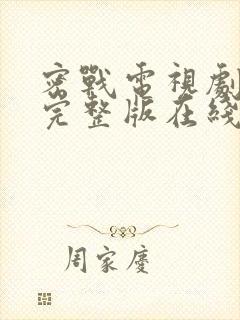 密戰電視劇
完整版在綫
周家慶